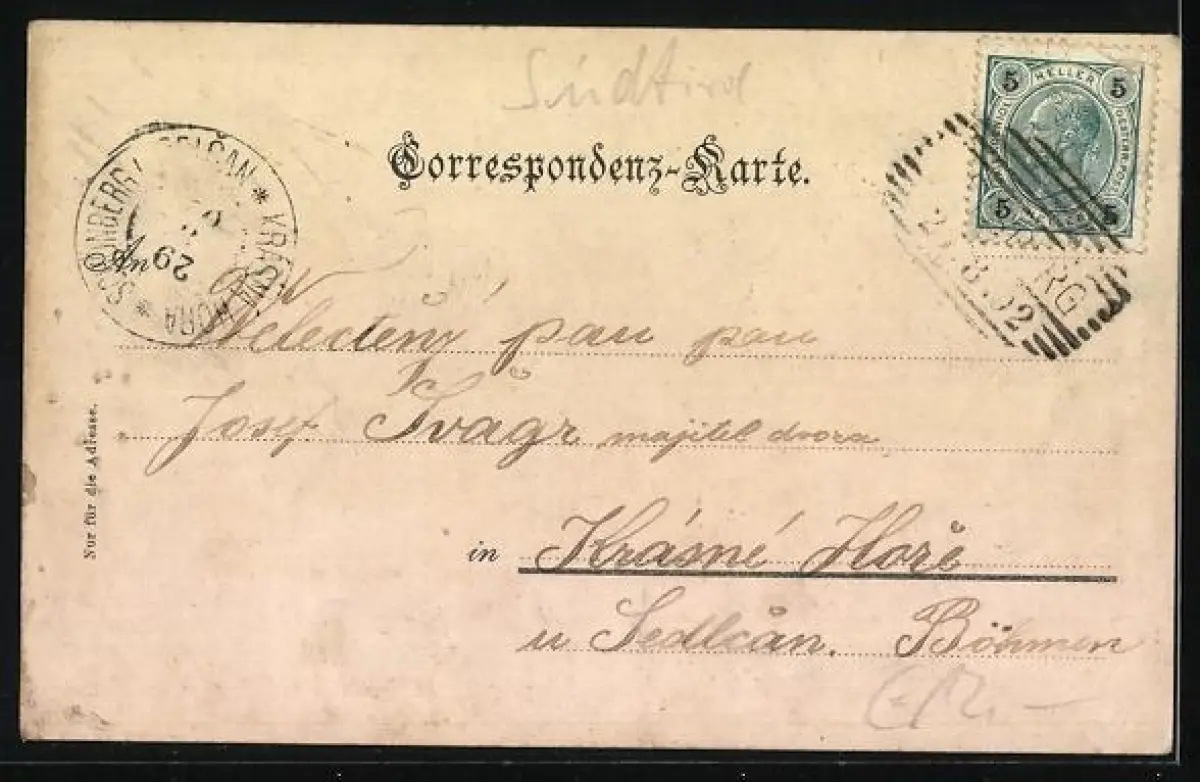 Südtirol
Correspondenz-Karte.
5 HELLER 5
5 5
SCHÖNBERG SELČAN * KRÁSNÁ HORA *
29
RG
8.02
An
Velectěný pan pan
Josef Švágr majitel dvora
in Krásné Hoře
u Sedlčan. Böhmen
Nur für die Adresse.